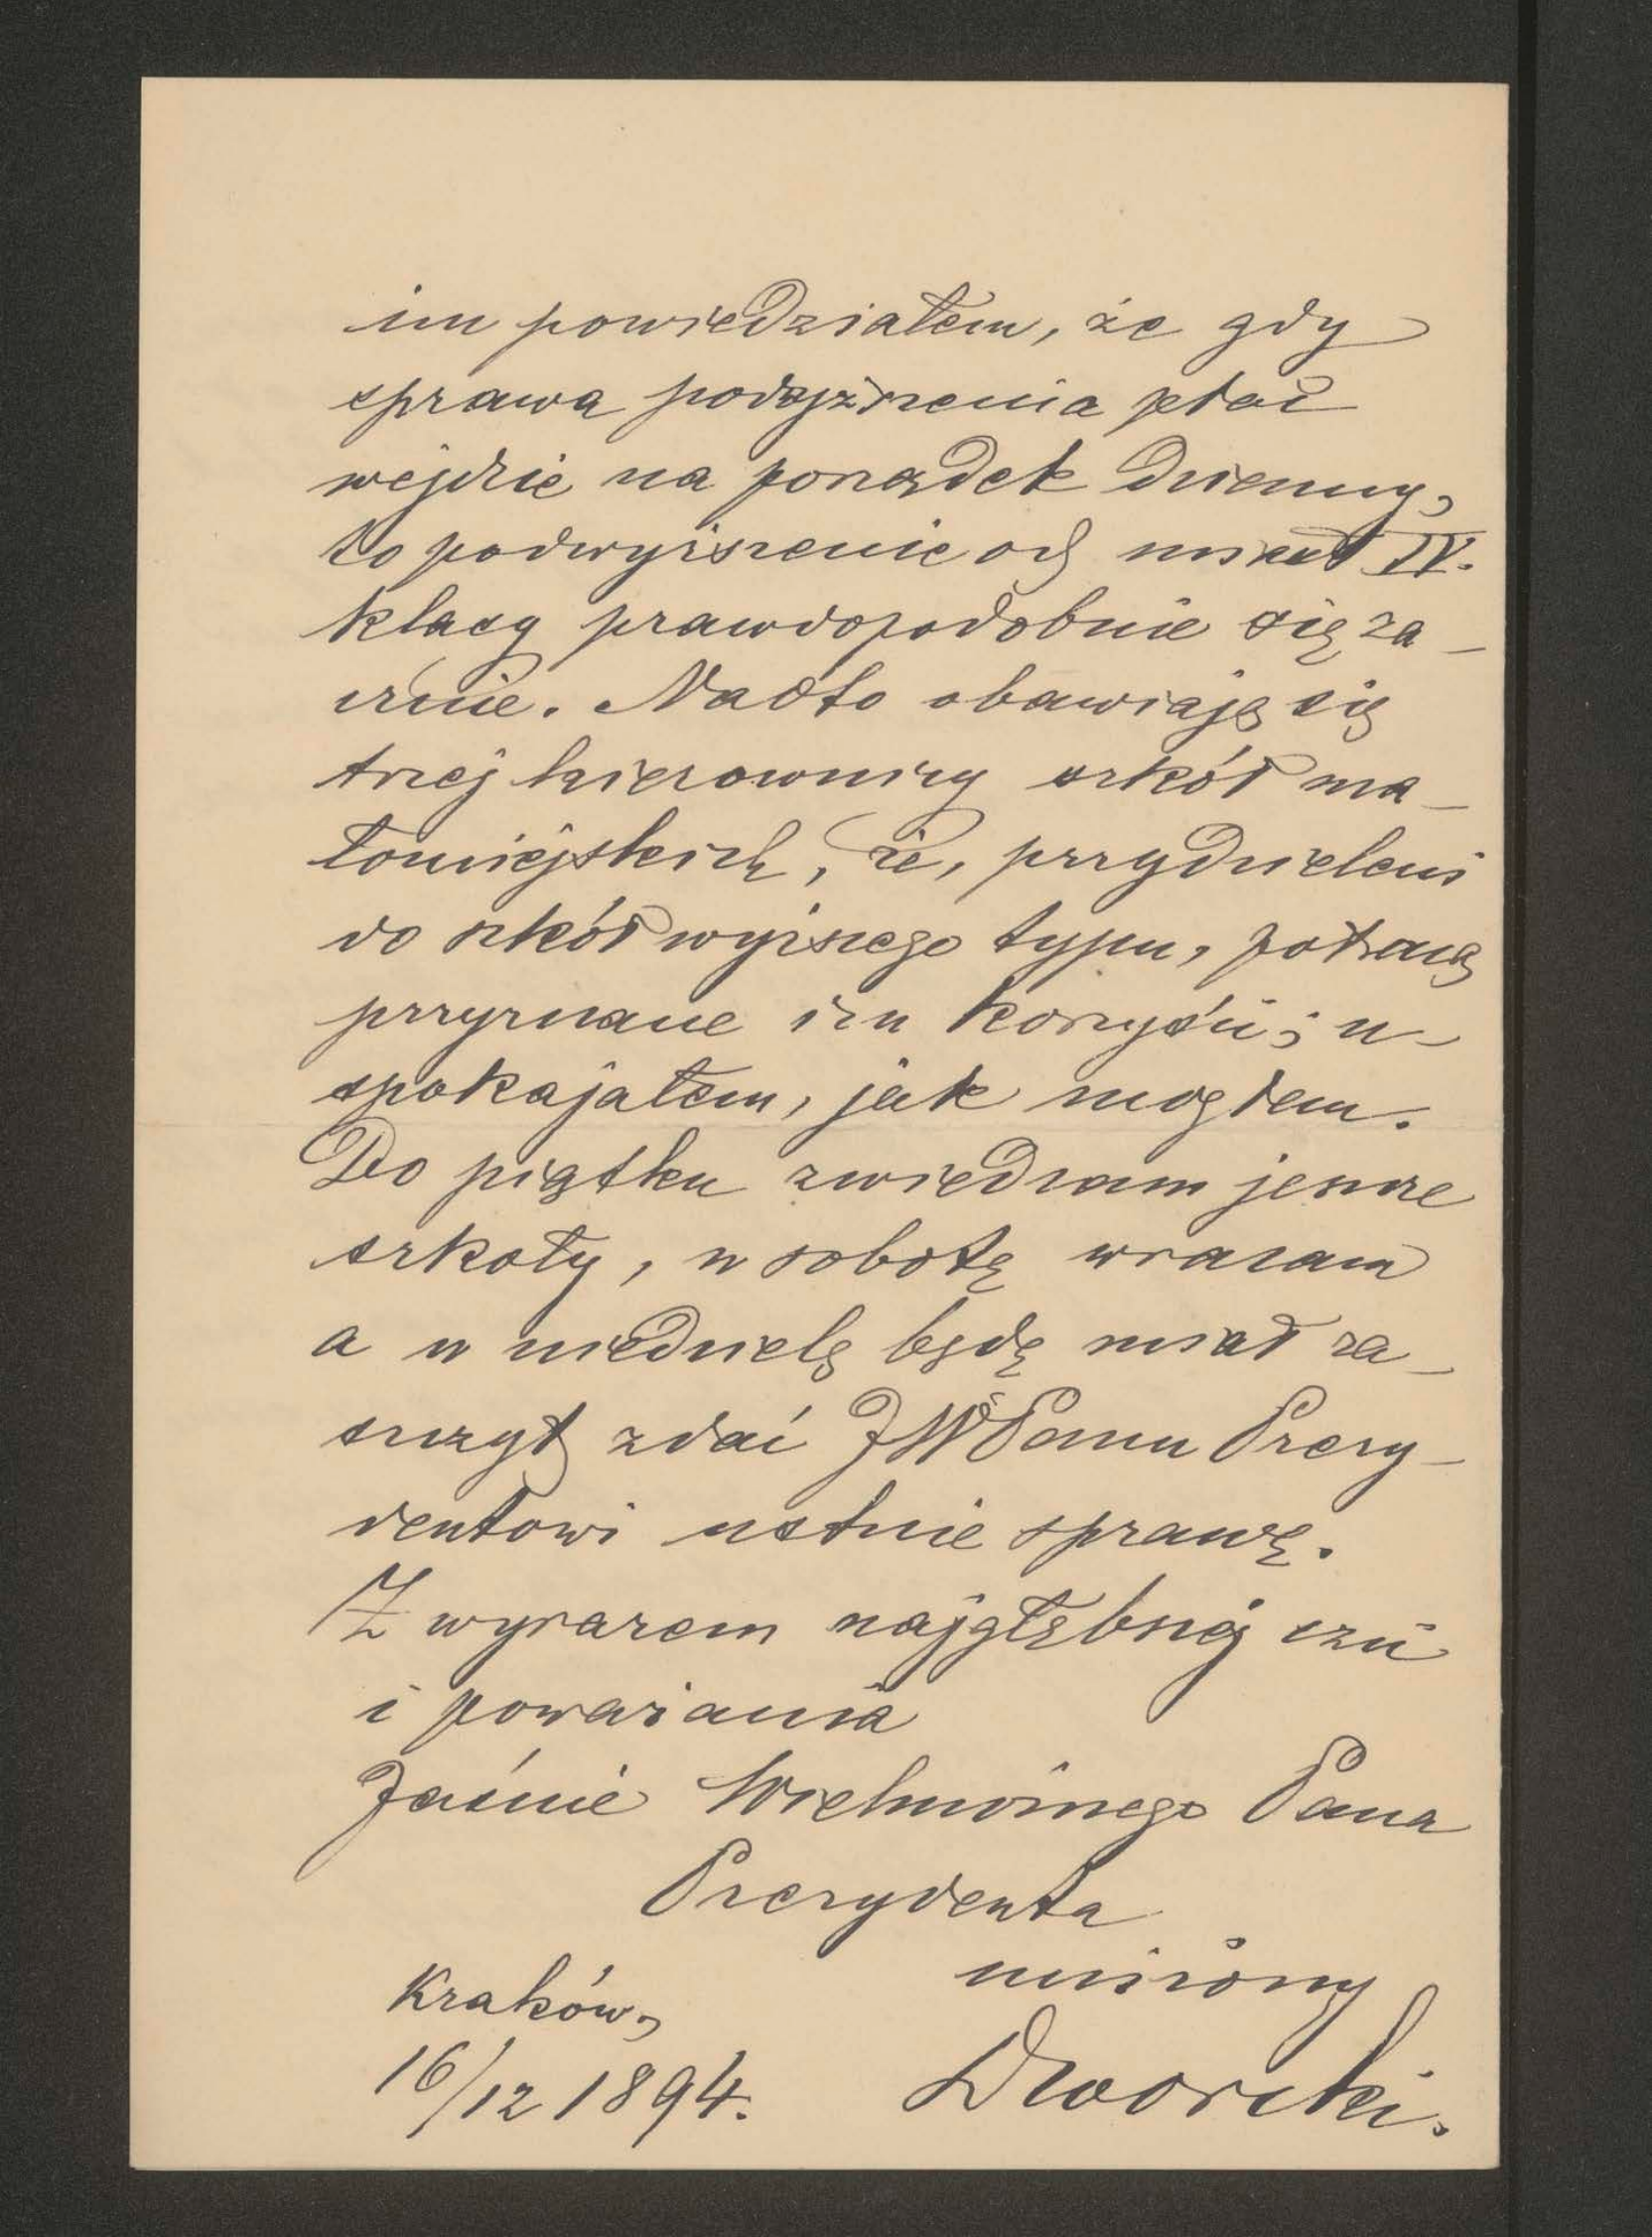 im powiedziałem, że gdy
sprawa podwyższenia płac
wejdzie na porządek dzienny,
to podwyższenie od miast IV.
klasy prawdopodobnie się za-
cznie. Nadto obawiają się
trzej kierownicy szkół ma-
łomiejskich, że, przydzieleni
do szkół wyższego typu, potracą
przyznane im korzyści; u-
spokajałem, jak mogłem.
Do piątku zwiedzam jeszcze
szkoły, w sobotę wracam
a w niedzielę będę miał za-
szczyt zdać JWPanu Prezy-
dentowi ustnie sprawę.
Z wyrazem najgłębszej czci
i poważania
Jaśnie Wielmożnego Pana
Prezydenta
uniżony
Kraków,
16/12 1894.
Dworski.